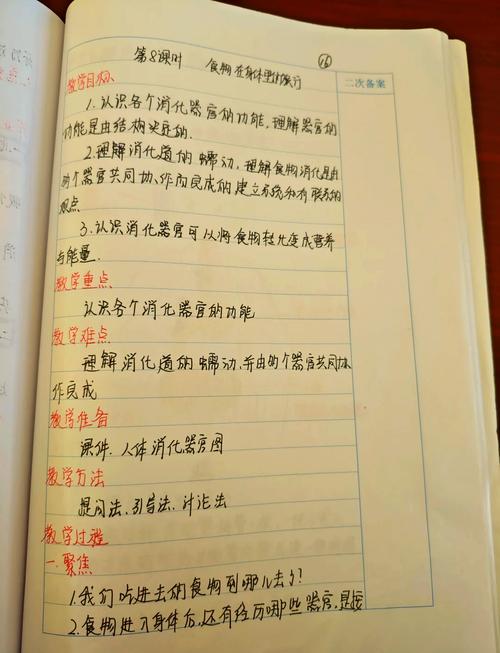 第8课时 食物在身体里的旅行 16
二次备案
教学目标
1.认识各个消化器官的功能,理解器官的
功能是由结构决定的.
2.理解消化道的蠕动,理解食物消化是由
的个器官共同协作而完成的建立系统和有联系的
观点
3.认识消化器官可以将食物转化变成营养
与能量.
教学重点
认识各个消化器官的功能
教学难点
理解消化道的蠕动,并由的个器官共同协
作完成
教学准备
课件.人体消化器官图
教学方法
提问法.引导法.讨论法
教学过程
一.聚焦
1.我们吃进去的食物到哪儿去了?
2.食物进入身体后,还有经历哪些器官,是按